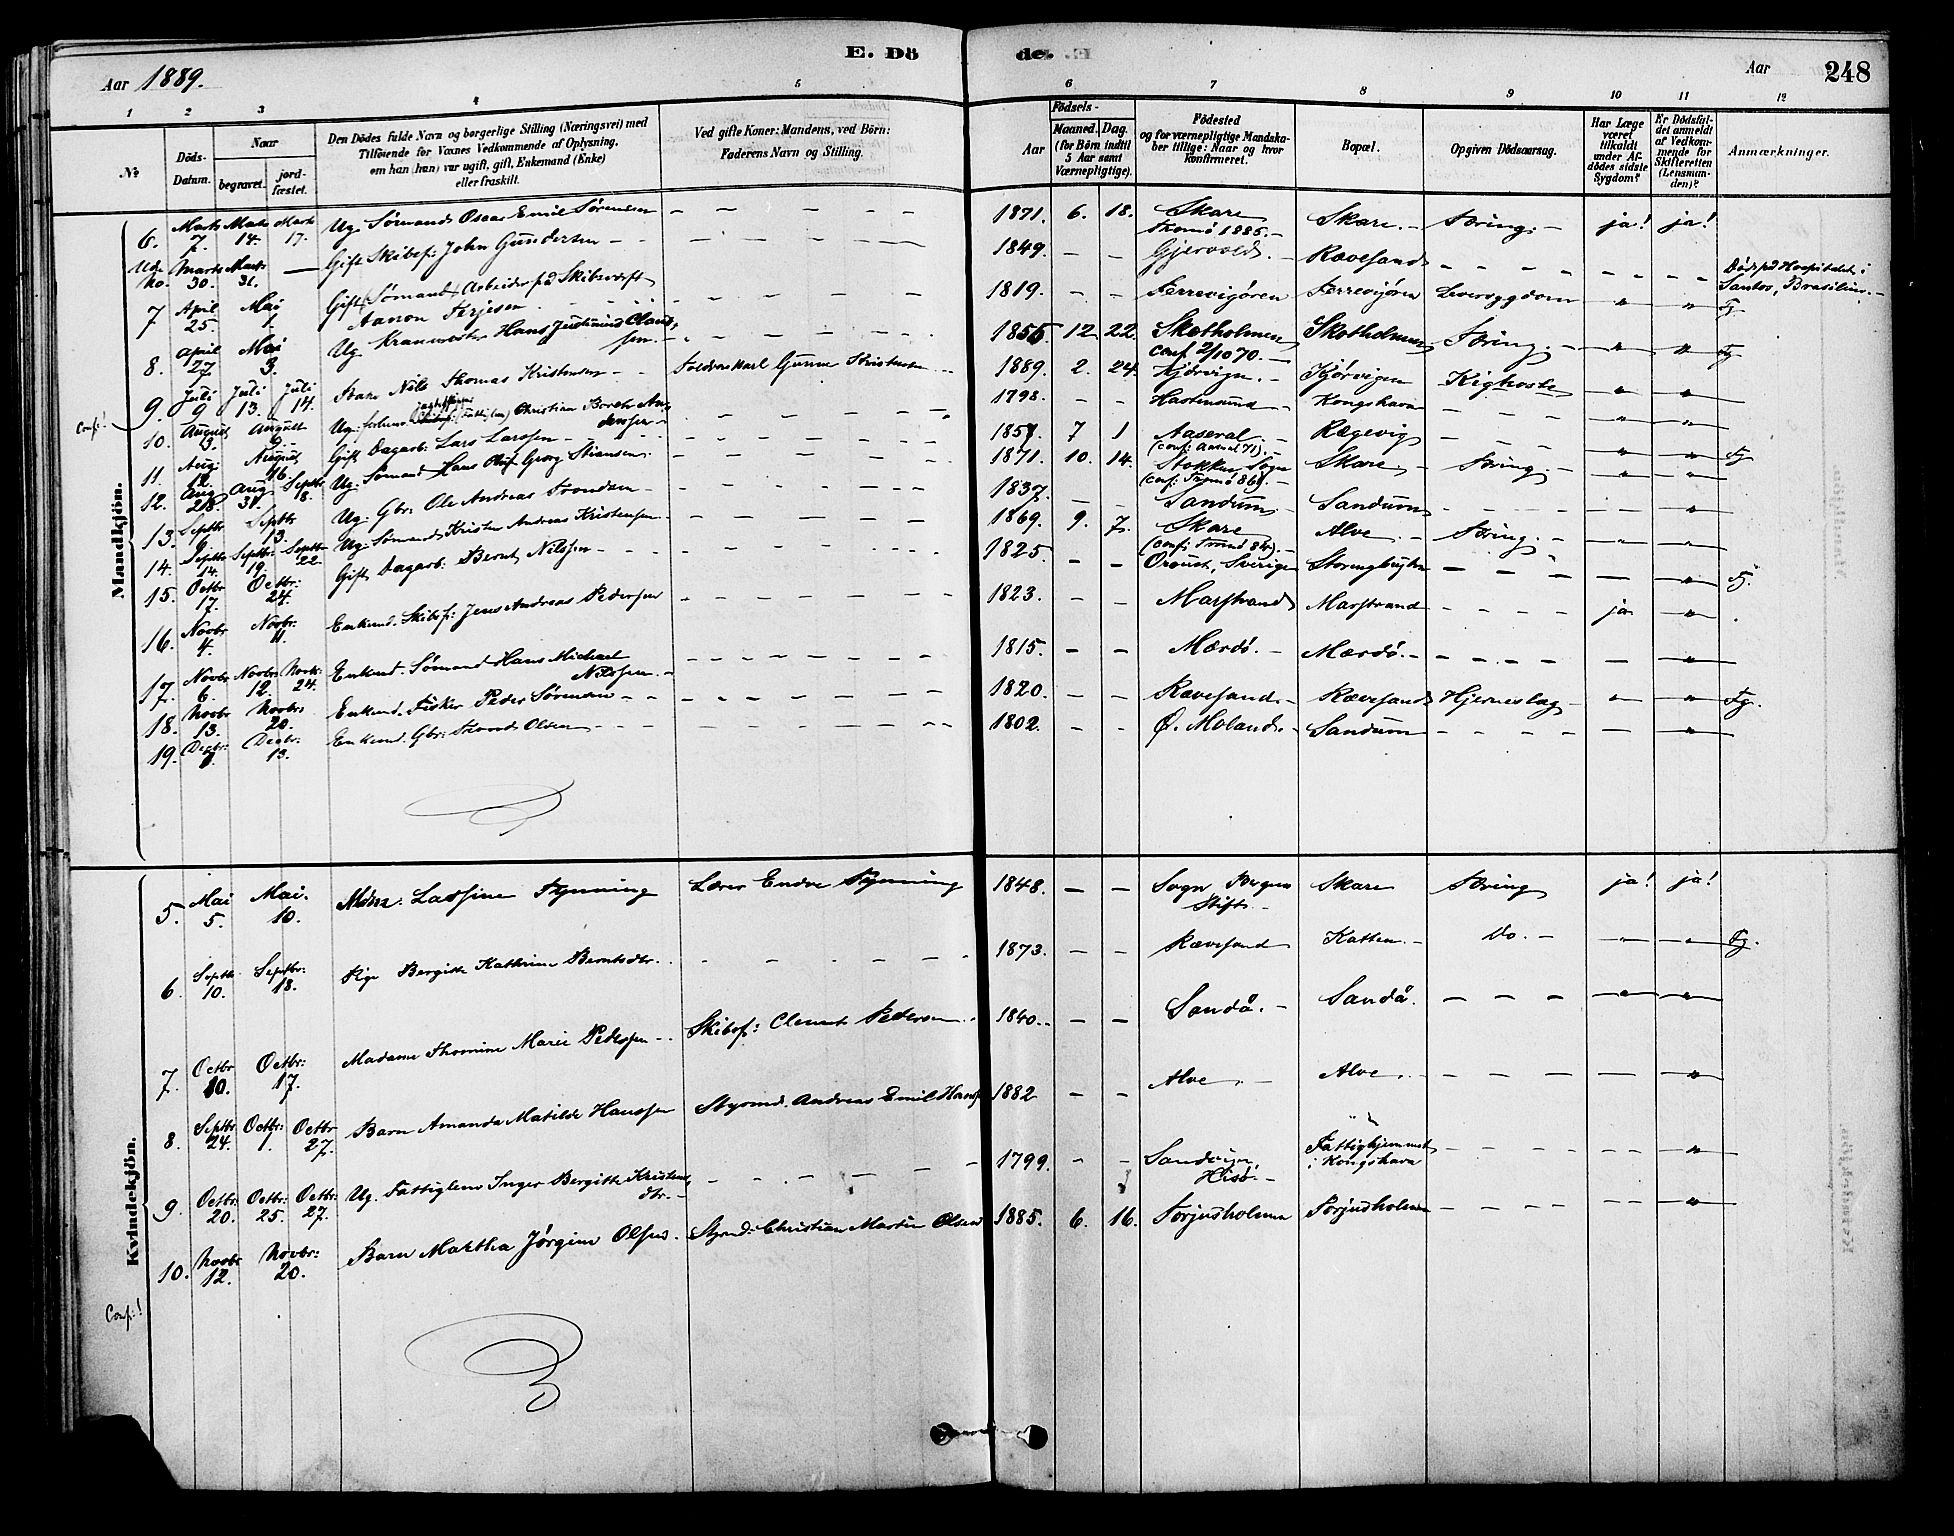 E. Döde.
Aar 1889.
Aar 248
1 2 3 4 5 6 7 8 9 10 11 12
No
Döds-Datum.
Naar
begravet. jordfæstet.
Den Dödes fulde Navn og borgerlige Stilling (Næringsvei) med
Tilföiende for Voxnes Vedkommende af Oplysning,
om han (hun) var ugift, gift, Enkemand (Enke)
eller fraskilt.
Ved gifte Koner: Mandens, ved Börn:
Faderens Navn og Stilling.
Födsels-
Aar Maaned. Dag.
(for Börn indtil
5 Aar samt
Værnepligtige).
Födested
og for værnepligtige Mandskaber tillige: Naar og hvor
konfirmeret.
Bopæl.
Opgiven Dödsaarsag.
Har Læge
været
tilkaldt
under Afdödes sidste
Sygdom?
Er Dödsfaldet anmeldt
af Vedkommende for
Skifteretten
(Lensmanden)?
Anmærkninger.
Mandkjön.
6. Marts 7. Marts 14. Marts 17. Ug. Sømand Oscar Emil Sørensen – – – – 1871. 6. 18. Skare Tromö 1885. – Skare. – Tæring. – ja! ja!
Udn No. Marts 30. Marts 31. — Gift Skibsf: John Gundersen – – 1849. – – Gjervold. – Rævesand – – – – Död på Hospitalet i Santos, Brasilien. –
7 April 25. Mai 1. Gift (Sømand) Arbeider på Skibsværft Aanon Terjesen – – 1819. – – Færrevigøren Færrevigøren Leversygdom " " Fg
8. April 27 Mai 3. Ug. Hans Justinius Claussen. – – 1855 12 22. Skotholmen conf. 2/10 70. – Skotholmen Tæring. – " " Fg
9. Juli 9 Juli 13. Juli 14. Nils Thomas Kristensen – – Gunne Kristensen – – 1889. 2. 24. Kjörvign. – Kjörvigen Kighoste " "
Conf!
10. August 3. August 9. – Ug. Christian Andersen – – 1798. Havnesund – Kongshavn – – – "
11. Aug: 12. August 16. Gift Dagarb: Lars Larssen – – 1857. 7 1 Aaseral. – (conf: Aaseral 71). – Rægevig – – " " Fg
12. Aug 28. Aug 31. Septbr 18. Ug: Sømand Hans Oluf Georg Stiansen. – 1871. 10. 14. Stokken Sogn (conf: Tromö 86). – Skare – Tæring. – " "
13. Septbr 9. Septbr 13. Ug: Gbr: Ole Andreas Trondsen – – 1837. – – Sandum – Sandum – – – "
14. Septbr 14. Septbr: 19. Septbr 22. Ug: Sømand Kristen Andreas Kristensen – – 1869. 9. 7. Skare (conf: Tromö 84). – Alve. – Tæring. – " "
15. Octbr 17. Octbr: 24. Gift Dagarb: Bernt Nilssen – – 1825 – – Oroust, Sverige – – – – " Fg.
16. Novbr 4. Novbr: 11. Enkemd. Skibsf: Jens Andreas Pedersen – 1823. – – Marstrand Marstrand – – – ja "
17. Novbr 6. Novbr: 12. Novbr. 24. Enkemd. Sømand Hans Michael Nilssen. – 1815. – – Mærdö. – Mærdö. – – – – – "
18. Novbr 13. Novbr: 20. Enkemd. Fisker Peder Sørensen – – 1820. – – Rævesand. – Rævesand Hjerneslag – " " Fg.
19. Decbr: 7. Decbr: 13. Enkemd. Gbr: Trond Olsen – – 1802. – – Ø. Moland. – Sandum – – – – "
Kvindekjön.
5. Mai 5. Mai. 10. Mdm: Lassine Fynning Lærer Endre Fynning 1848. – – Sogn Bergens Stift. – Skare Tæring ja! ja!
6. Septbr 10. Septbr: 18. Pige Bergitte Kathrine Berntsdtr. – – – 1873. – – Rævesand Katten. – Do. – " " Fg.
7. Octbr 10. Octbr: 17. Madame Thomine Marie Pedersen – – Skibsf: Clemet Pedersen. 1840. – – Sandö. – Sandö. – – – " "
8. Septbr 24. Octbr: 1. Octbr 27. Barn Amanda Matilde Hanssen Styrmd. Andreas Emil Hanss 1882 – – Alve. – Alve. – – – – – "
9. Octbr 20. Octbr: 25. Octbr: 27. Ug. Fattiglem Inger Bergitte Kristensdtr. – – – 1799. – – Sandvign Hisö. – Fattighjemmet i Kongshavn – – – – "
10. Novbr 12. Novbr: 20. Barn Martha Jørgine Olsen. Styrmd: Christian Martin Olsen 1885. 6. 16. Torjusholmen Torjusholmen – – – – "
Conf: !